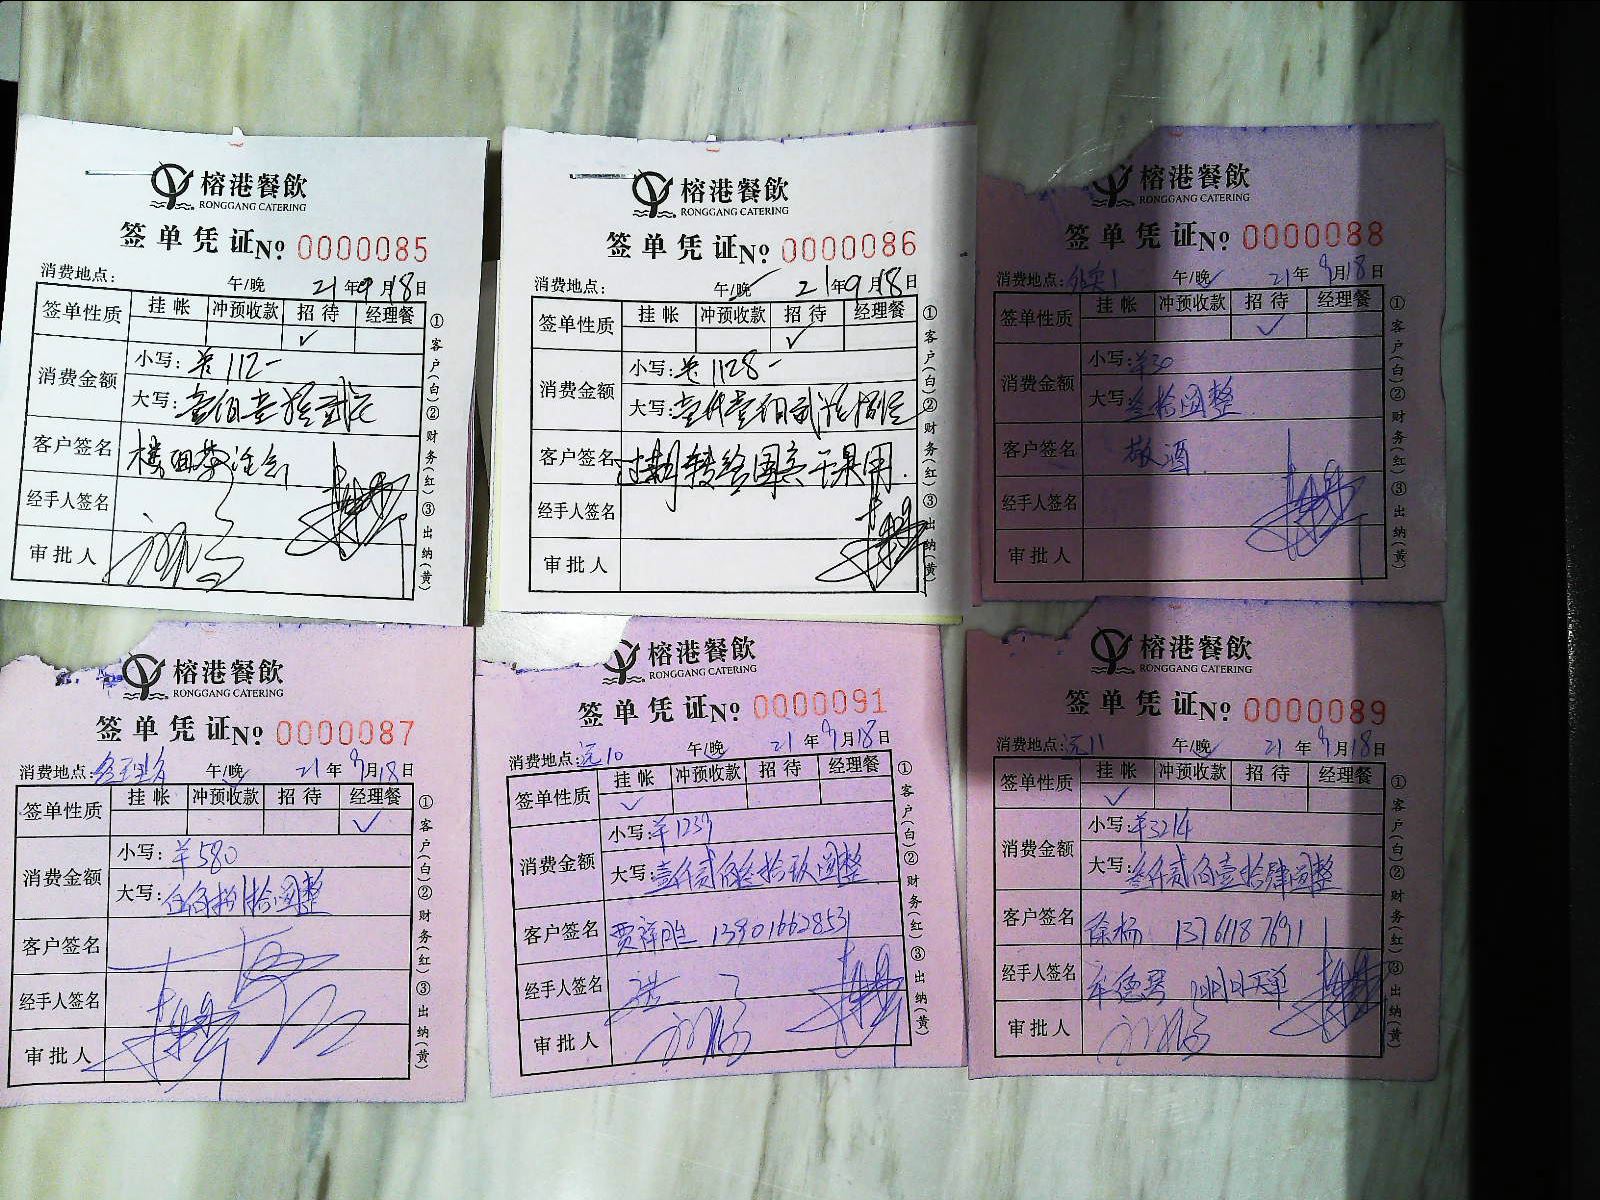 榕港餐飲
RONGGANG CATERING
签单凭证 № 0000085
消费地点: 午/晚 21年9月18日
签单性质 挂帐 冲预收款 招待 经理餐
✓
消费金额 小写: 112-
大写: 壹佰壹拾贰元
客户签名
经手人签名
审批人
①客户(白)②财务(红)③出纳(黄)
榕港餐飲
RONGGANG CATERING
签单凭证 № 0000086
消费地点: 午/晚 21年9月18日
签单性质 挂帐 冲预收款 招待 经理餐
✓
消费金额 小写: 1128-
大写: 壹仟壹佰贰拾捌元
客户签名 过期转给国宾干果用.
经手人签名
审批人
①客户(白)②财务(红)③出纳(黄)
榕港餐飲
RONGGANG CATERING
签单凭证 № 0000088
消费地点: 外卖1 午/晚 21年9月18日
签单性质 挂帐 冲预收款 招待 经理餐
✓
消费金额 小写: ¥30
大写: 叁拾圆整
客户签名 敬酒
经手人签名
审批人
①客户(白)②财务(红)③出纳(黄)
榕港餐飲
RONGGANG CATERING
签单凭证 № 0000087
消费地点: 经理餐 午/晚 21年9月18日
签单性质 挂帐 冲预收款 招待 经理餐
✓
消费金额 小写: ¥580
大写: 伍佰捌拾圆整
客户签名
经手人签名
审批人
①客户(白)②财务(红)③出纳(黄)
榕港餐飲
RONGGANG CATERING
签单凭证 № 0000091
消费地点: 远10 午/晚 21年9月18日
签单性质 挂帐 冲预收款 招待 经理餐
✓
消费金额 小写: ¥1239
大写: 壹仟贰佰叁拾玖圆整
客户签名 贾祥胜 13901662853
经手人签名
审批人
①客户(白)②财务(红)③出纳(黄)
榕港餐飲
RONGGANG CATERING
签单凭证 № 0000089
消费地点: 远11 午/晚 21年9月18日
签单性质 挂帐 冲预收款 招待 经理餐
✓
消费金额 小写: ¥3214
大写: 叁仟贰佰壹拾肆圆整
客户签名 徐杨 13761187691
经手人签名 牟德琴
审批人
①客户(白)②财务(红)③出纳(黄)